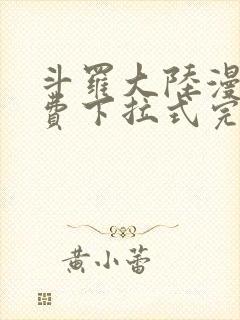 斗羅大陸漫
費下拉式完
黃小蕾